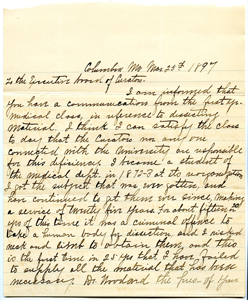 Columbia Mo Mar 25th 1897
To the Executive board of Curators.
I am informed that
you have a communication from the first yr
Medical class, in reference to dissecting
material. I think I can satisfy the class
to day that the Curators nor any one
connected with the University are responsible
for this deficiency. I became a student of
the medical dept. in 1872-3 at its reorganization
I got the subject that was used, and
have continued to get them ever since, (making
a service of twenty five years) For about fifteen
yrs of this time it was a criminal offence to
take a human body for dissection and I risked
neck and to obtain them, and this
is the first time in 25 yrs that I have failed
to supply all the material that has been
necessary. Dr Woodard the of your